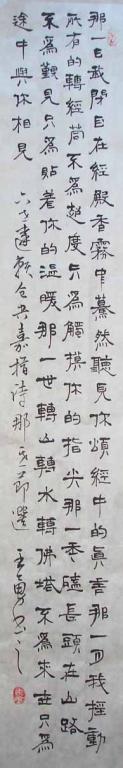 那一日我閉目在經殿香霧中驀然聽見你頌經中的真言那一月我搖動
所有的轉經筒不為超度只為觸摸你的指尖那一年磕長頭在山路
不為覲見只為貼着你的溫暖那一世轉山轉水轉佛塔不為來世只為
途中與你相見 六世達賴仓央嘉措詩那一世節選